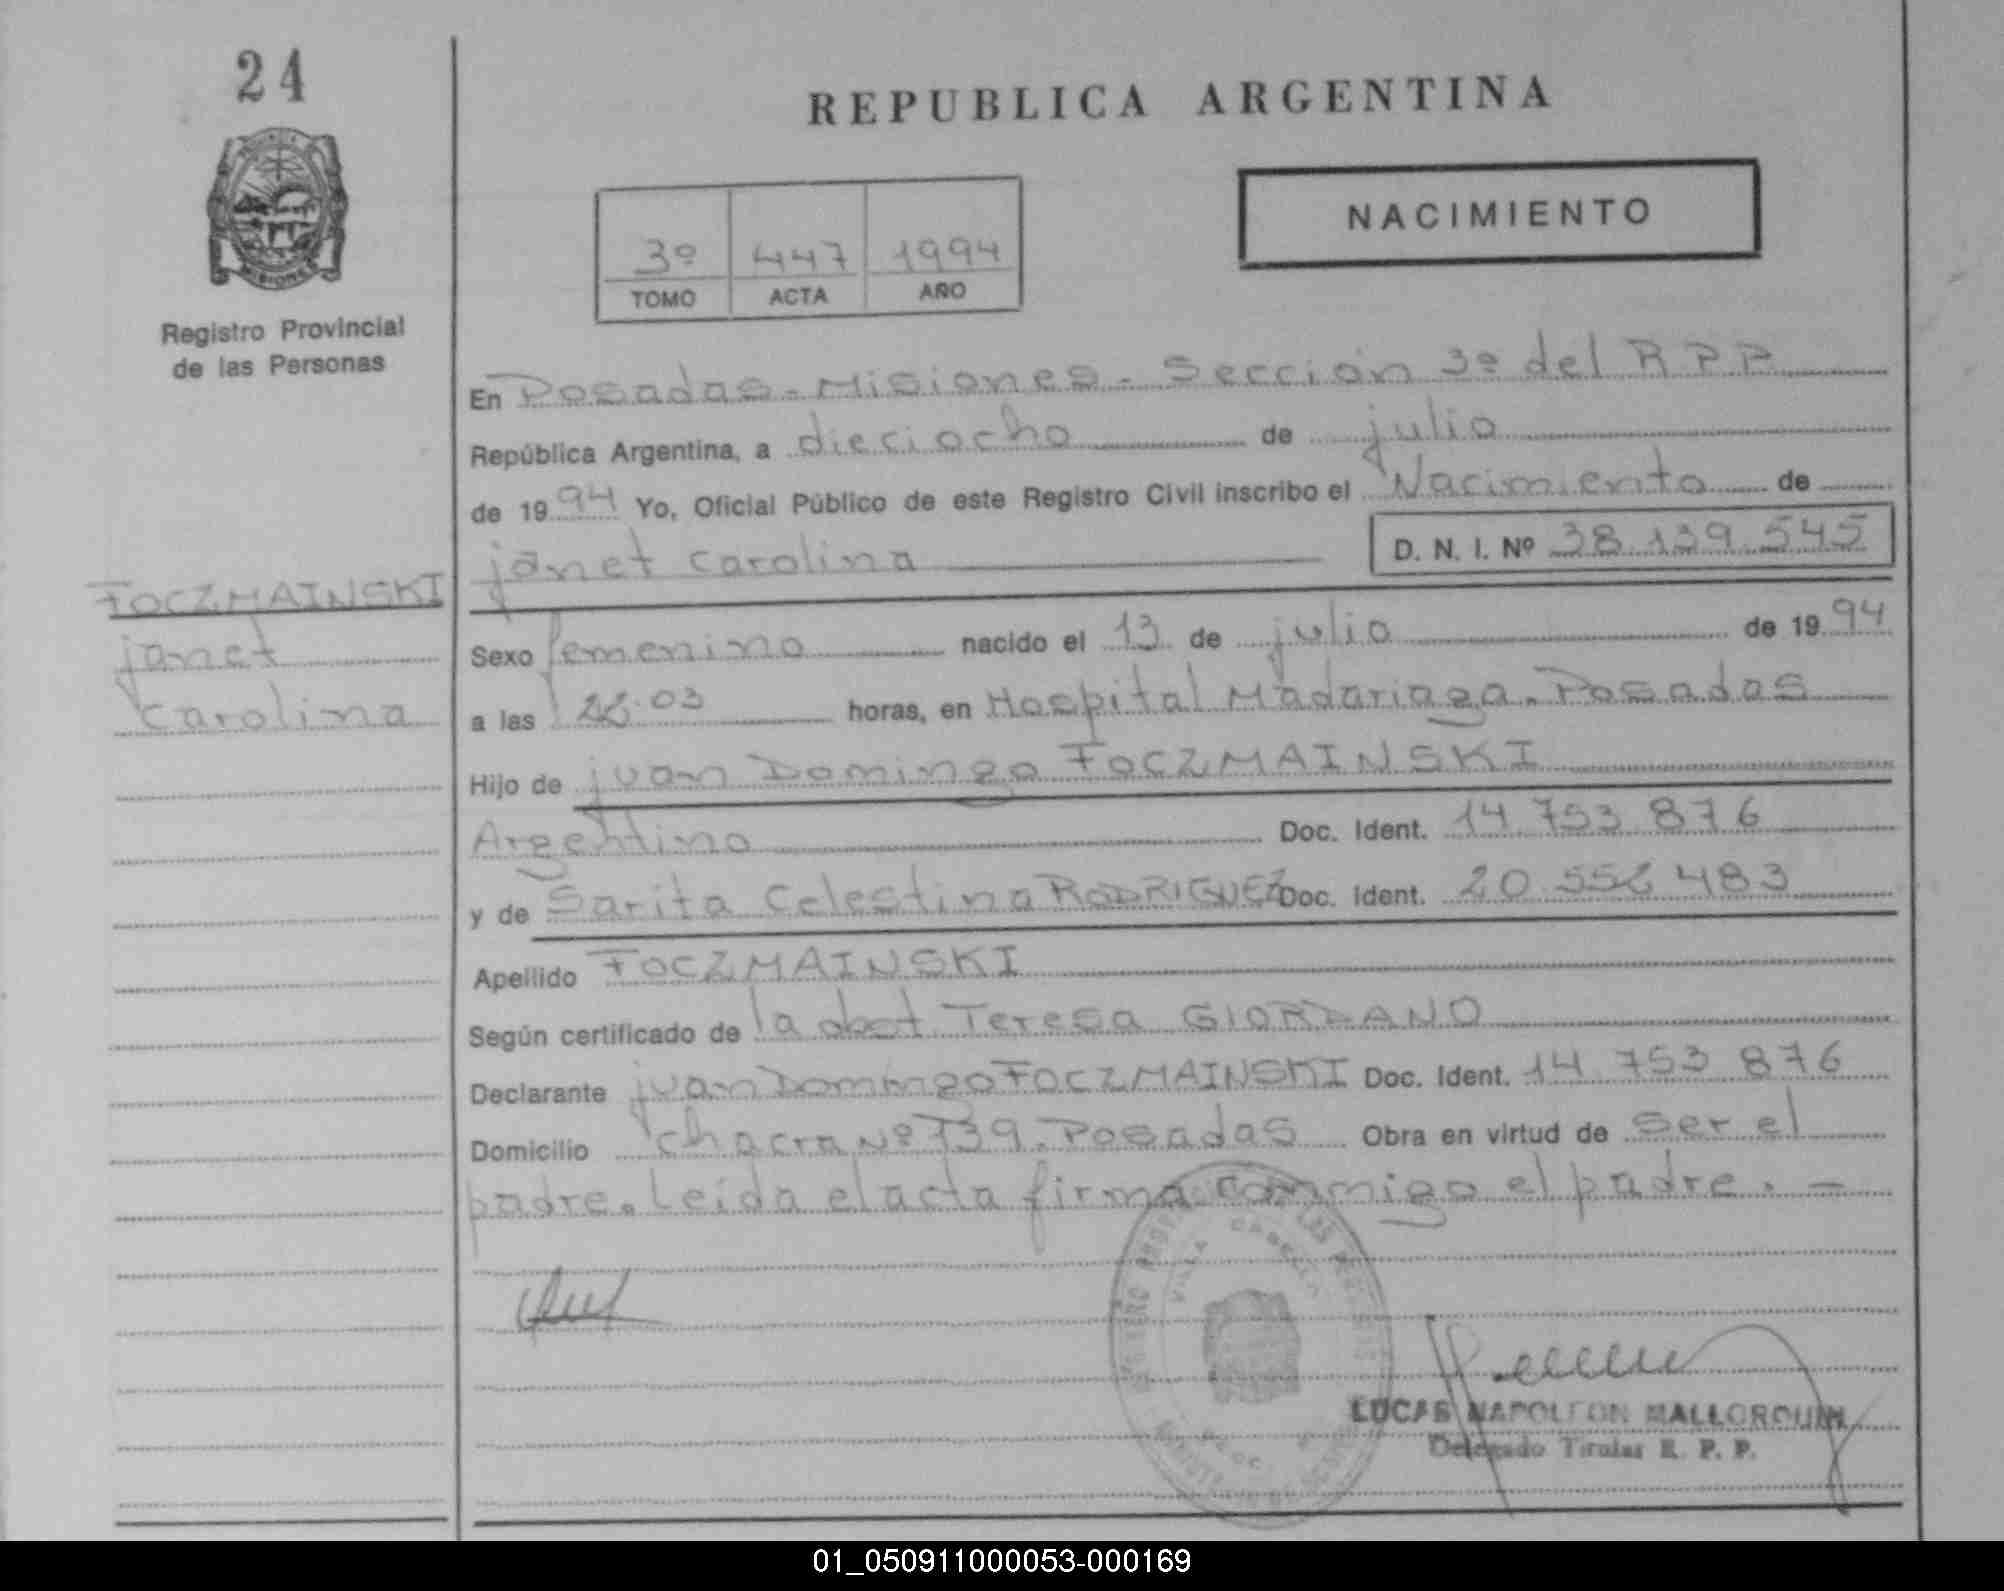 24
REPUBLICA ARGENTINA
NACIMIENTO
3º 447 1994
TOMO ACTA AÑO
MISIONES
Registro Provincial
de las Personas
En Posadas - Misiones - Sección 3º del R P P
República Argentina, a dieciocho de julio
de 1994 Yo, Oficial Público de este Registro Civil inscribo el Nacimiento de
janet carolina D. N. I. Nº 38.139.545
FOCZMAINSKI
janet
carolina
Sexo femenino nacido el 13 de julio de 1994
a las horas, en Hospital Madariaga. Posadas
Hijo de juan Domingo FOCZMAINSKI
Argentino Doc. Ident. 14.753.876
y de Sarita Celestina RODRIGUEZ Doc. Ident. 20.556.483
Apellido FOCZMAINSKI
Según certificado de la obst. Teresa GIORDANO
Declarante juan Domingo FOCZMAINSKI Doc. Ident. 14.753.876
Domicilio chacra Nº 139. Posadas Obra en virtud de ser el
padre. Leída el acta firma conmigo el padre. -
VILLA CABELLO
LUCAS NAPOLEON MALLORQUIN
Delegado Titular R. P. P.
01_050911000053-000169